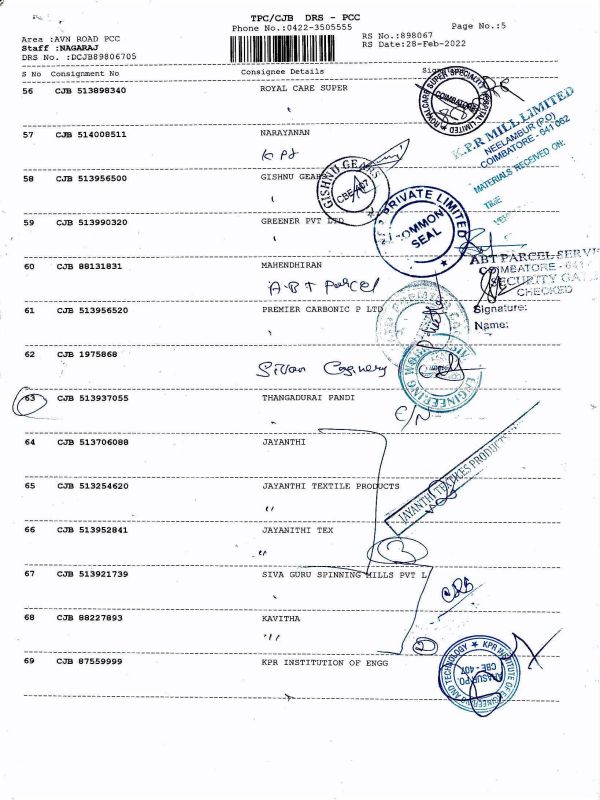 TPC/CJB DRS - PCC
Phone No.:0422-3505555
Page No.:5
Area :AVN ROAD PCC
RS No.:898067
Staff :NAGARAJ
RS Date:28-Feb-2022
DRS No. :DCJB89806705
S No Consignment No Consignee Details
56 CJB 513898340 ROYAL CARE SUPER
ROYALCARE SUPER SPECIALITY HOSPITAL LIMITED
COIMBATORE
K.P.R MILL LIMITED
NEELAMBUR (P.O)
COIMBATORE - 641 062
MATERIALS RECEIVED ON:
TIME
57 CJB 514008511 NARAYANAN
58 CJB 513956500 GISHNU GEARS
GISHNU GEARS
59 CJB 513990320 GREENER PVT LTD
PRIVATE LIMITED
COMMON
SEAL
60 CJB 88131831 MAHENDHIRAN
ABT Parcel
ABT PARCEL SERVI
COIMBATORE - 641
SECURITY GA
CHECKED
Signature:
Name:
61 CJB 513956520 PREMIER CARBONIC P LTD
62 CJB 1975868
ENGINEERING
63 CJB 513937055 THANGADURAI PANDI
C/N
64 CJB 513706088 JAYANTHI
65 CJB 513254620 JAYANTHI TEXTILE PRODUCTS
"
JAYANTHI TEXTILES PRODUCTS
66 CJB 513952841 JAYANITHI TEX
"
3
67 CJB 513921739 SIVA GURU SPINNING MILLS PVT L
68 CJB 88227893 KAVITHA
69 CJB 87559999 KPR INSTITUTION OF ENGG
KPR INSTITUTE OF ENGINEERING AND TECHNOLOGY
ARASUR PO.
CBE - 407